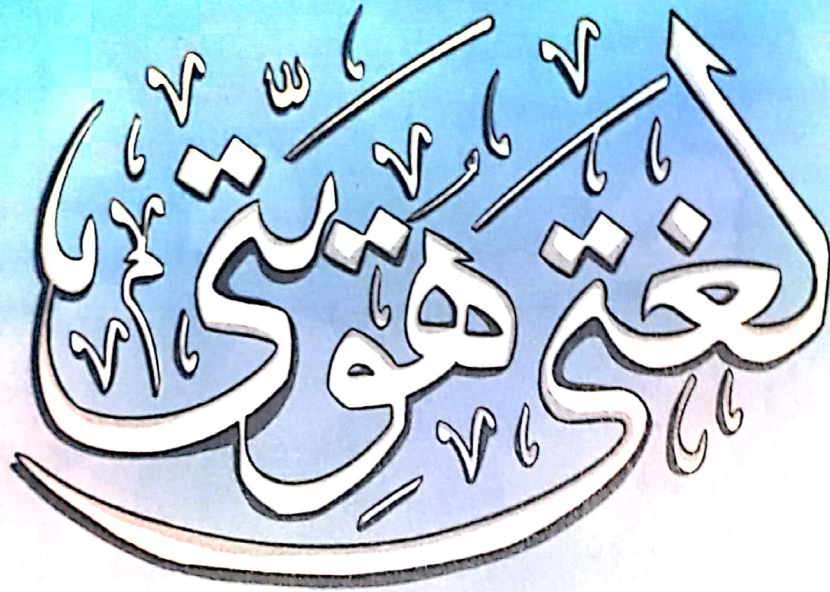 لغتي هُوِيَّتي